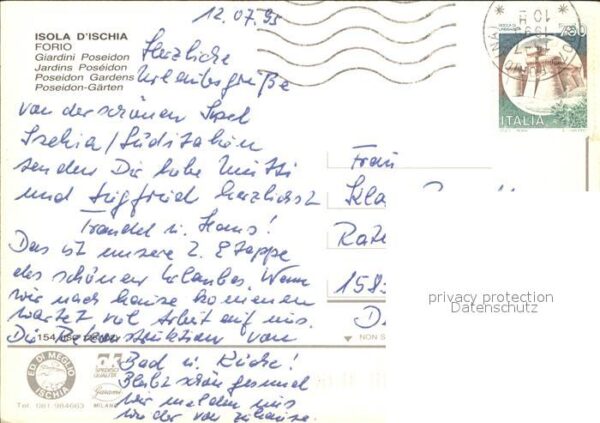 12.07.95
ISOLA D'ISCHIA
FORIO
Giardini Poseidon
Jardins Poséidon
Poseidon Gardens
Poseidon-Gärten
Herzliche
Urlaubsgrüße
von der schönen Insel
Ischia/Süditalien
senden Dir liebe Mutti
und Siegfried herzlichst
Traudel u. Hans!
Das ist unsere 2. Etappe
des schönen Urlaubes. Wenn
wir nach hause kommen
wartet viel Arbeit auf uns.
Die Rekonstruktion von
Bad u. Küche!
Bleibt schön gesund
wir melden uns
wieder von zuhause.
750
ITALIA
Frau
Kla
Rate
158
D
privacy protection
Datenschutz
154
NON S
ED. DI MEGLIO
ISCHIA
Tel. 081.984663
MILANO